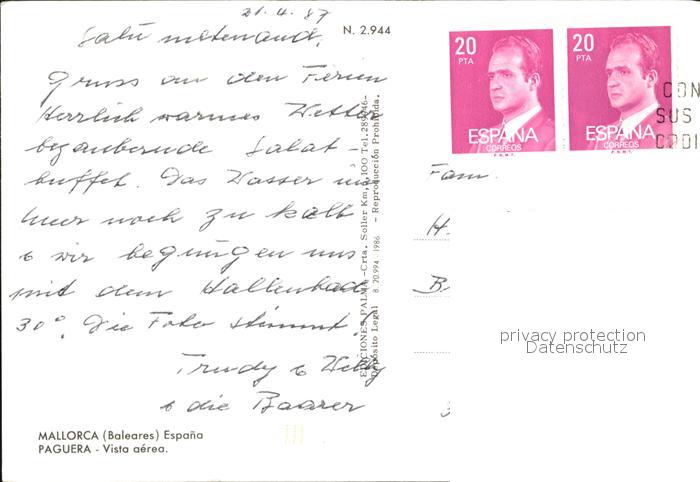 21.4.87
Salü metenand,
Gruss aus den Ferien
Herrlich warmes Wetter
bezaubernde Salat-
buffet. Das Wasser im
Meer noch zu kalt
& wir begnügen uns
mit dem Hallenbad
30°. Die Foto stimmt!
Trudy & Willy
& die Baarer
MALLORCA (Baleares) España
PAGUERA - Vista aérea.
N. 2.944
EDICIONES PALMA-Crta. Soller Km,
Depósito Legal B. 20.994 1986 - Reproducción Prohibida.
20
PTA
ESPAÑA
CORREOS
F.N.M.T.
20
PTA
ESPAÑA
CORREOS
F.N.M.T.
CON
SUS
CODI
Fam.
H.
B
privacy protection
Datenschutz